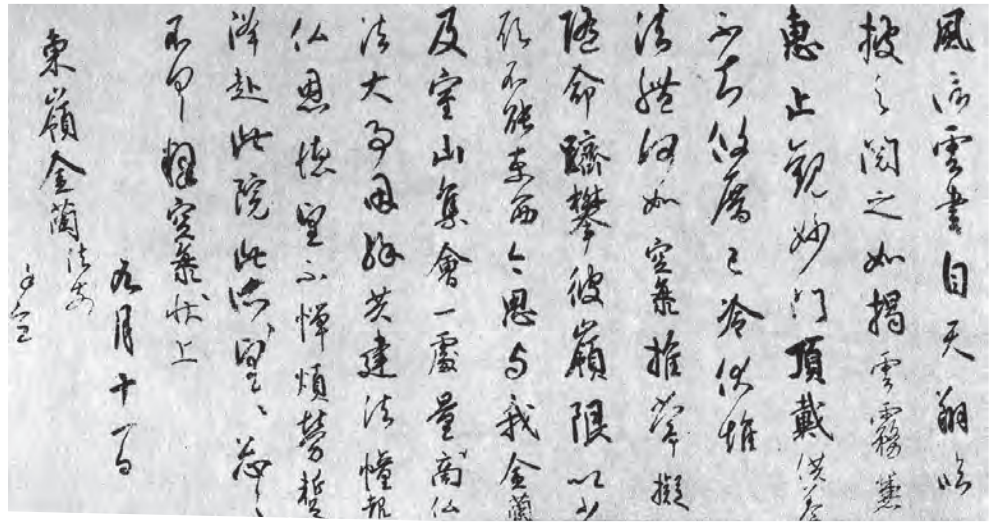 風信雲書自天翔臨
披之閲之如掲雲霧兼
恵止観妙門頂戴供養
不知攸厝已冷伏惟
法體何如空海推常擬
随命躋攀彼嶺限以少
願不能東西今思与我金蘭
及室山集會一處量商仏
法大事因縁共建法幢報
仏恩徳望不憚煩労蹔
降赴此院此所望々忩々
不具釋空海状上
九月十一日
東嶺金蘭法前
謹空